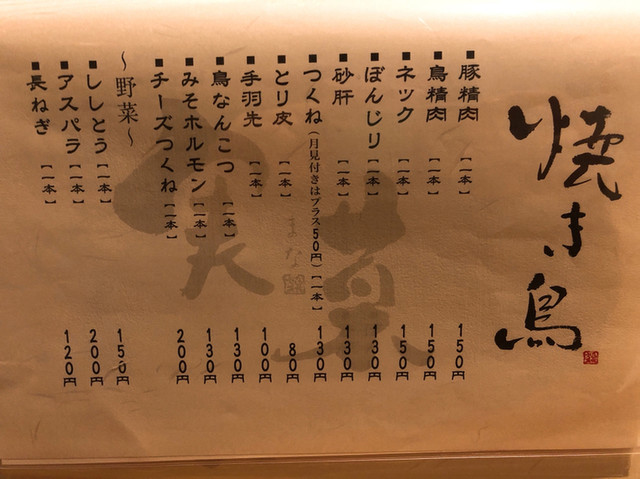 焼き鳥
■豚精肉【一本】 150円
■鳥精肉【一本】 150円
■ネック【一本】 150円
■ぼんじり【一本】 130円
■砂肝【一本】 130円
■つくね(月見付きはプラス50円)【一本】 130円
■とり皮【一本】 80円
■手羽先【一本】 100円
■鳥なんこつ【一本】 130円
■みそホルモン【一本】 130円
■チーズつくね【一本】 200円
～野菜～
■ししとう【一本】 150円
■アスパラ【一本】 200円
■長ねぎ【一本】 120円
菜実
まな